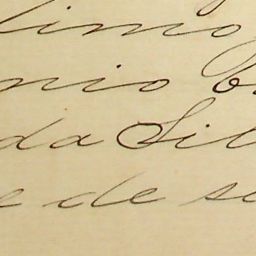 limo
nio b
da Sil
e de se